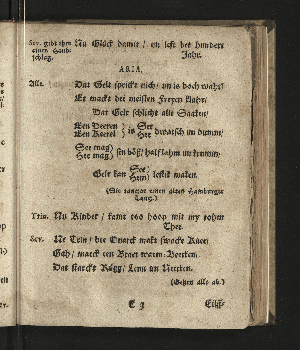 Sev. gibt ihm
einen Hand-
schlag.
Nu Glück damit / un lest bet hundert
Jahr.
ARIA.
Alle. Dat Gelt sprickt nich / un is doch wahr /
Et mackt bei meisten Freyen klahr /
Dat Gelt schlicht alle Saaken /
Een Deeren
Een Keerel } is { See
Hee } dwatsch un dumm /
See mag
Hee mag } sin böß / half lahm un krumm /
Gelt kan { See
Hem } leslick maken.
(Sie tantzet einen alten Hamburger
Tantz.)
Trin. Nu Kinder / kamt too hoop mit my rohen
Thee.
Sev. Ne Trin / die Quarck mackt swacke Knee /
Gah / maeck een Braet waren-Beecken /
Dat starckt Rügg / Lenn un Neecken.
(Gehen alle ab.)
E 3